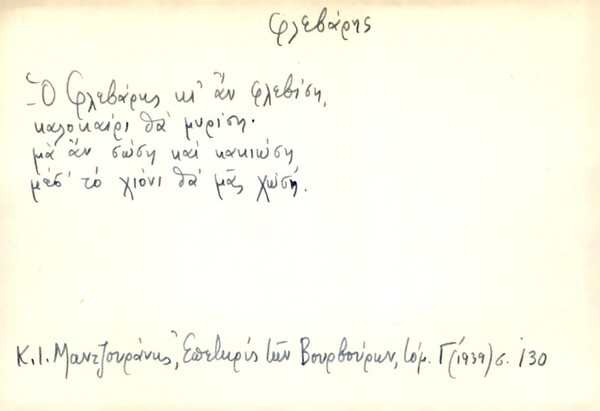 Φλεβάρης
Ὁ Φλεβάρης κι' ἂν φλεβίση,
καλοκαίρι θὰ μυρίση·
μὰ ἂν σώση καὶ κακιώση
μέσ' τὸ χιόνι θὰ μᾶς χώση.
Κ. Ι. Μαντζουράνης, Ἐπετηρὶς τῶν Βουρβούρων, τόμ. Γ' (1939) σ. 130